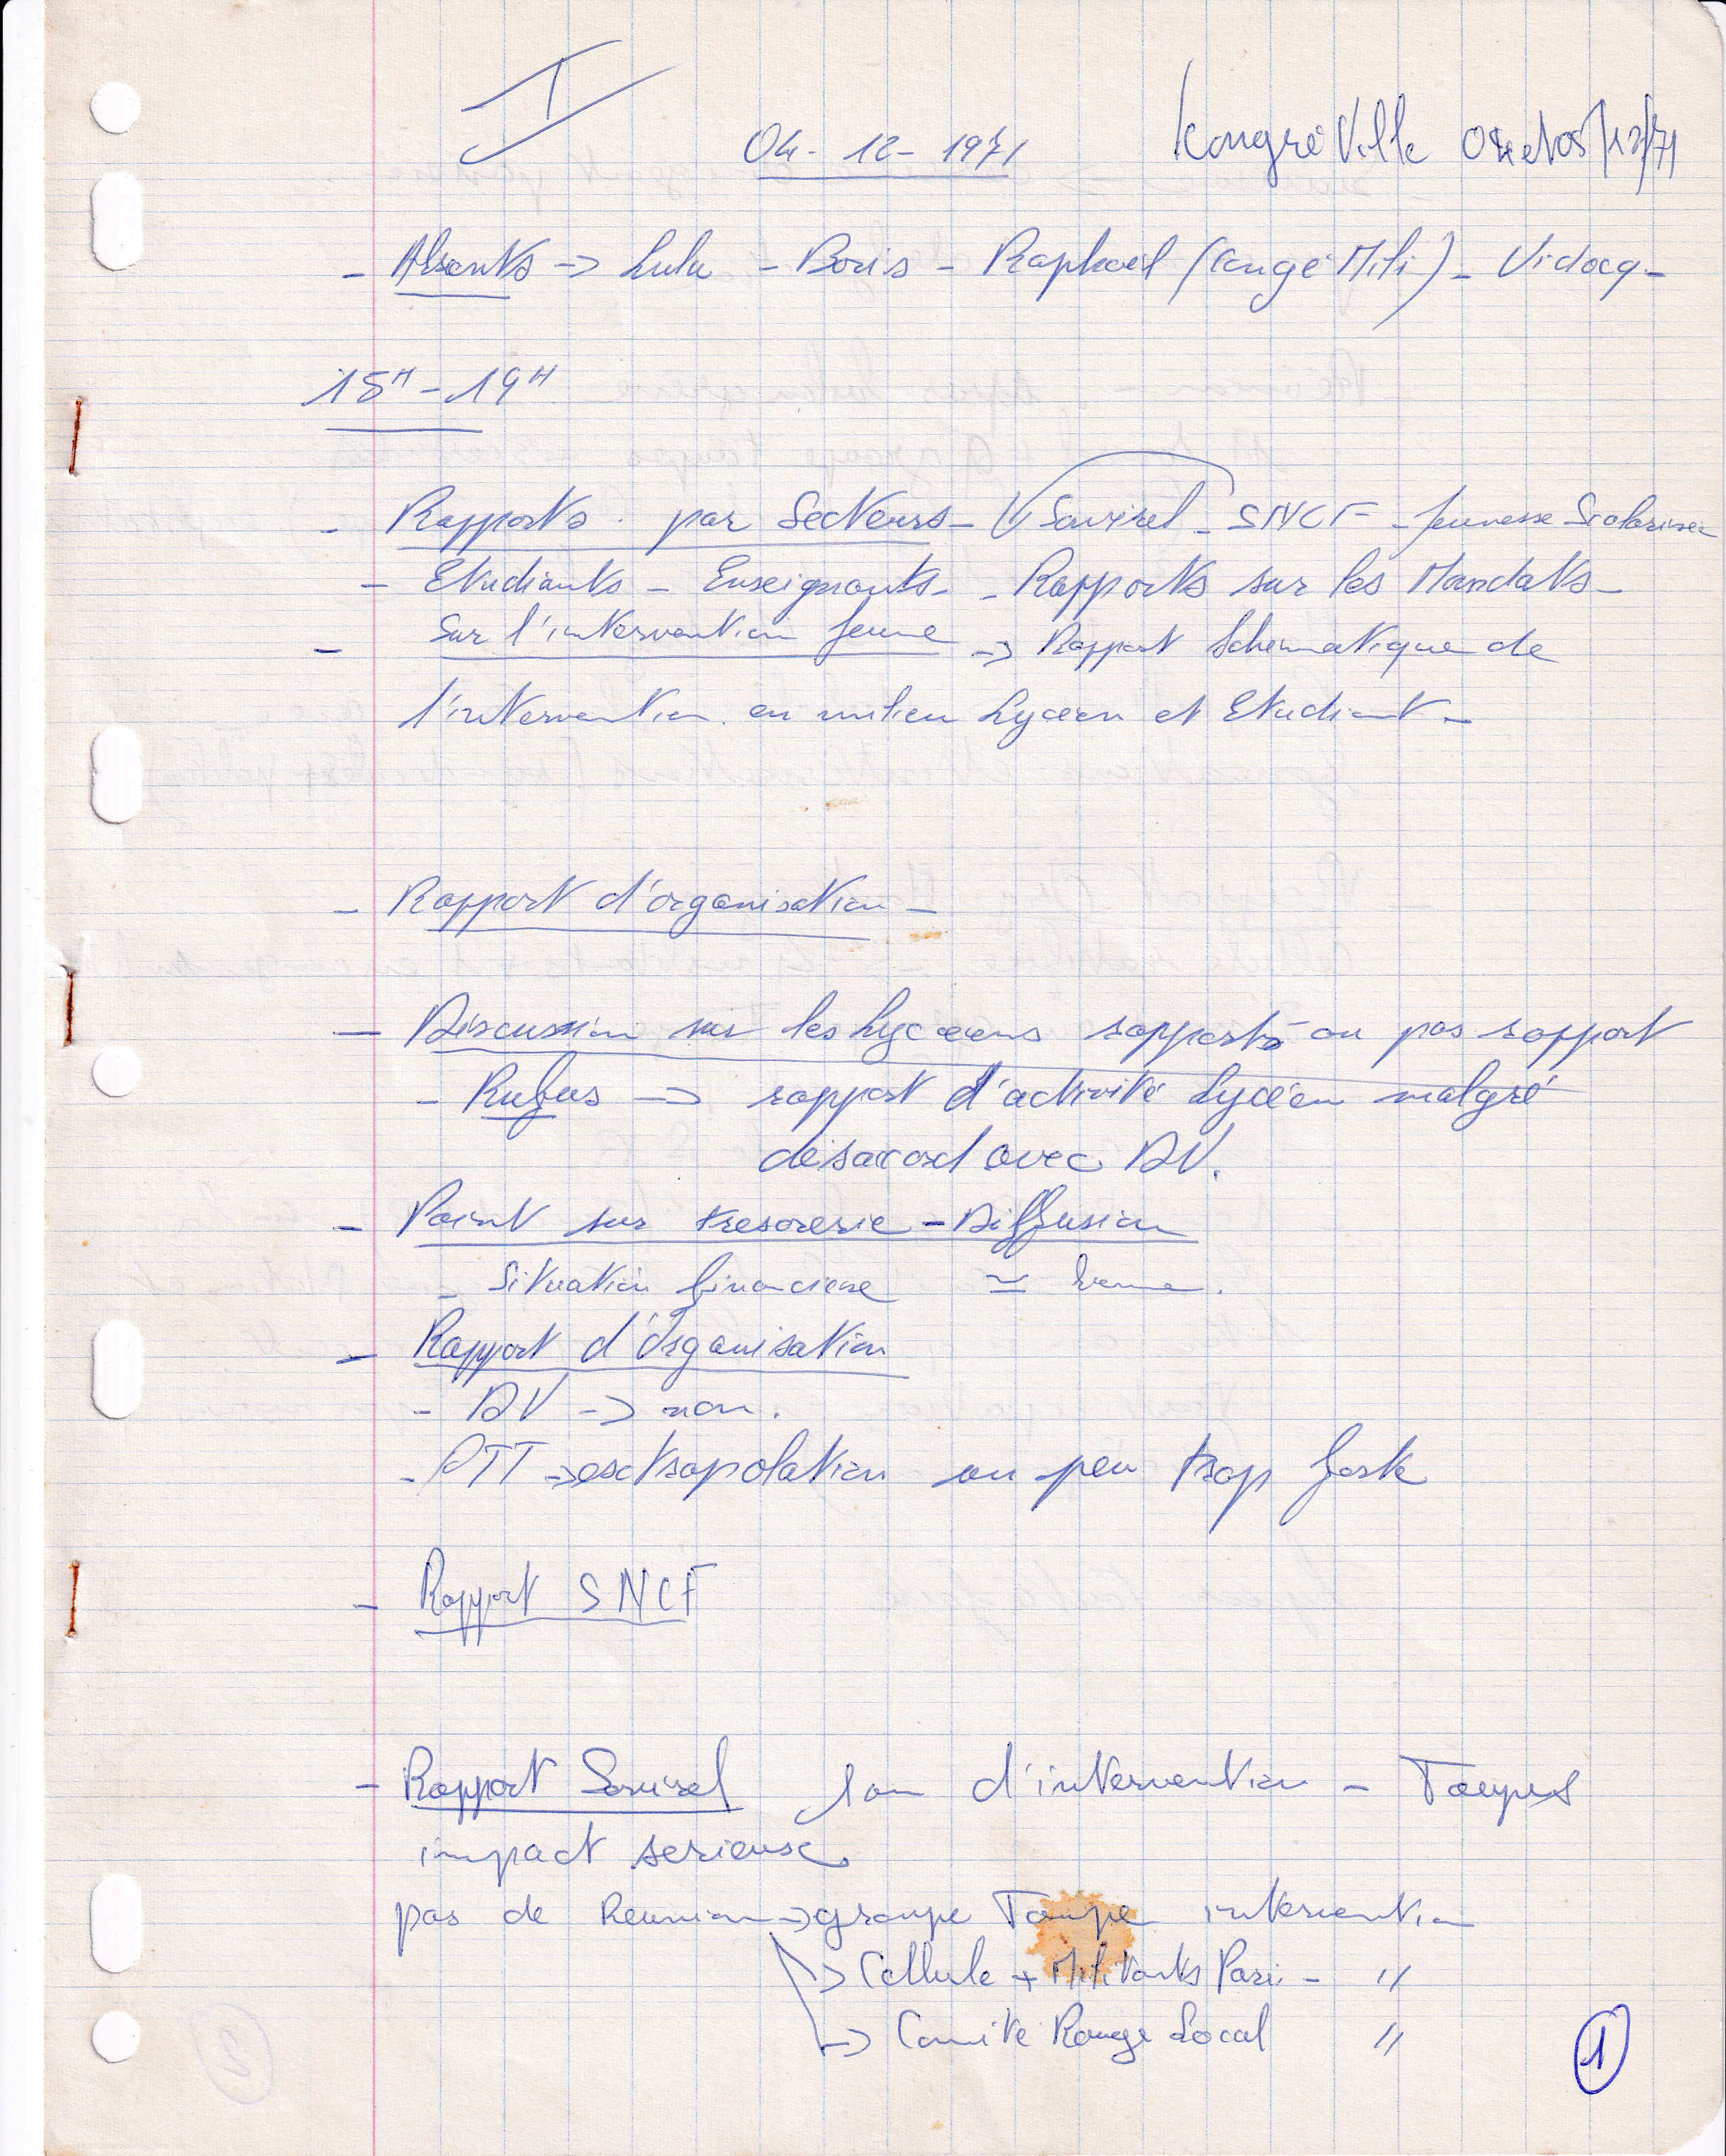 I
04-12-1971
Kongré Ville 04 et 05/12/71
- Absents -> Lulu - Boris - Raphaël (congé Mili) - Vidocq -
15H - 19H
- Rapports par Secteurs - Sovirel - SNCF - Jeunesse Scolarisée
- Etudiants - Enseignants - - Rapports sur les Mandats -
- Sur l'intervention Jeune -> Rapport schématique de
l'intervention en milieu Lycéen et Etudiant -
- Rapport d'organisation -
- Discussion sur les Lycéens rapports ou pas rapport
- Rufus -> rapport d'activité Lycéen malgré
désaccord avec DV.
- Point sur tresorerie - Diffusion
- Situation financiere ≃ bonne.
- Rapport d'Organisation
- DV -> non.
- PTT -> extrapolation un peu trop forte
- Rapport SNCF
- Rapport Sovirel d'intervention - Taupes
impact serieuse.
pas de Reunion -> groupe Taupe intervention
-> Cellule + Militants Paris - "
-> Comité Rouge Local "
1